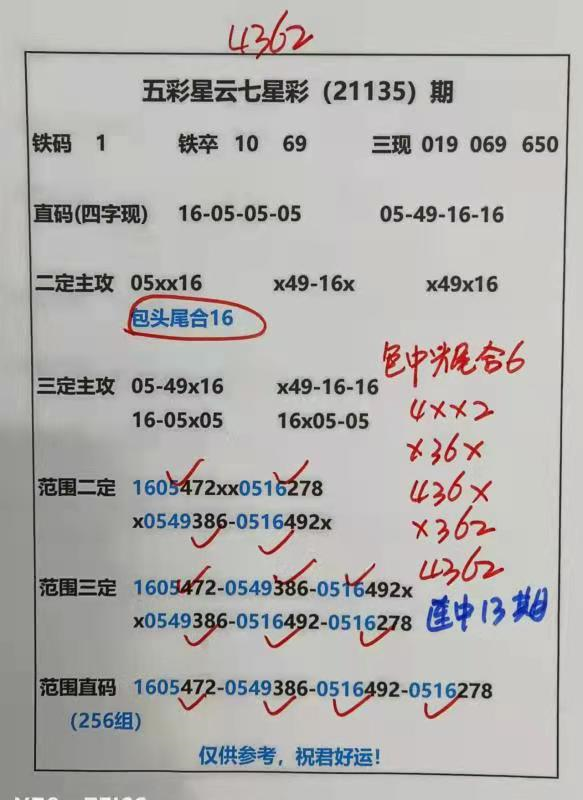 4362
五彩星云七星彩（21135）期
铁码 1 铁卒 10 69 三现 019 069 650
直码(四字现) 16-05-05-05 05-49-16-16
二定主攻 05xx16 x49-16x x49x16
包头尾合16
包中头尾合6
三定主攻 05-49x16 x49-16-16
16-05x05 16x05-05
4xx2
x36x
436x
x362
4362
连中13期
范围二定 1605472xx0516278
x0549386-0516492x
范围三定 1605472-0549386-0516492x
x0549386-0516492-0516278
范围直码 1605472-0549386-0516492-0516278
（256组）
仅供参考，祝君好运！